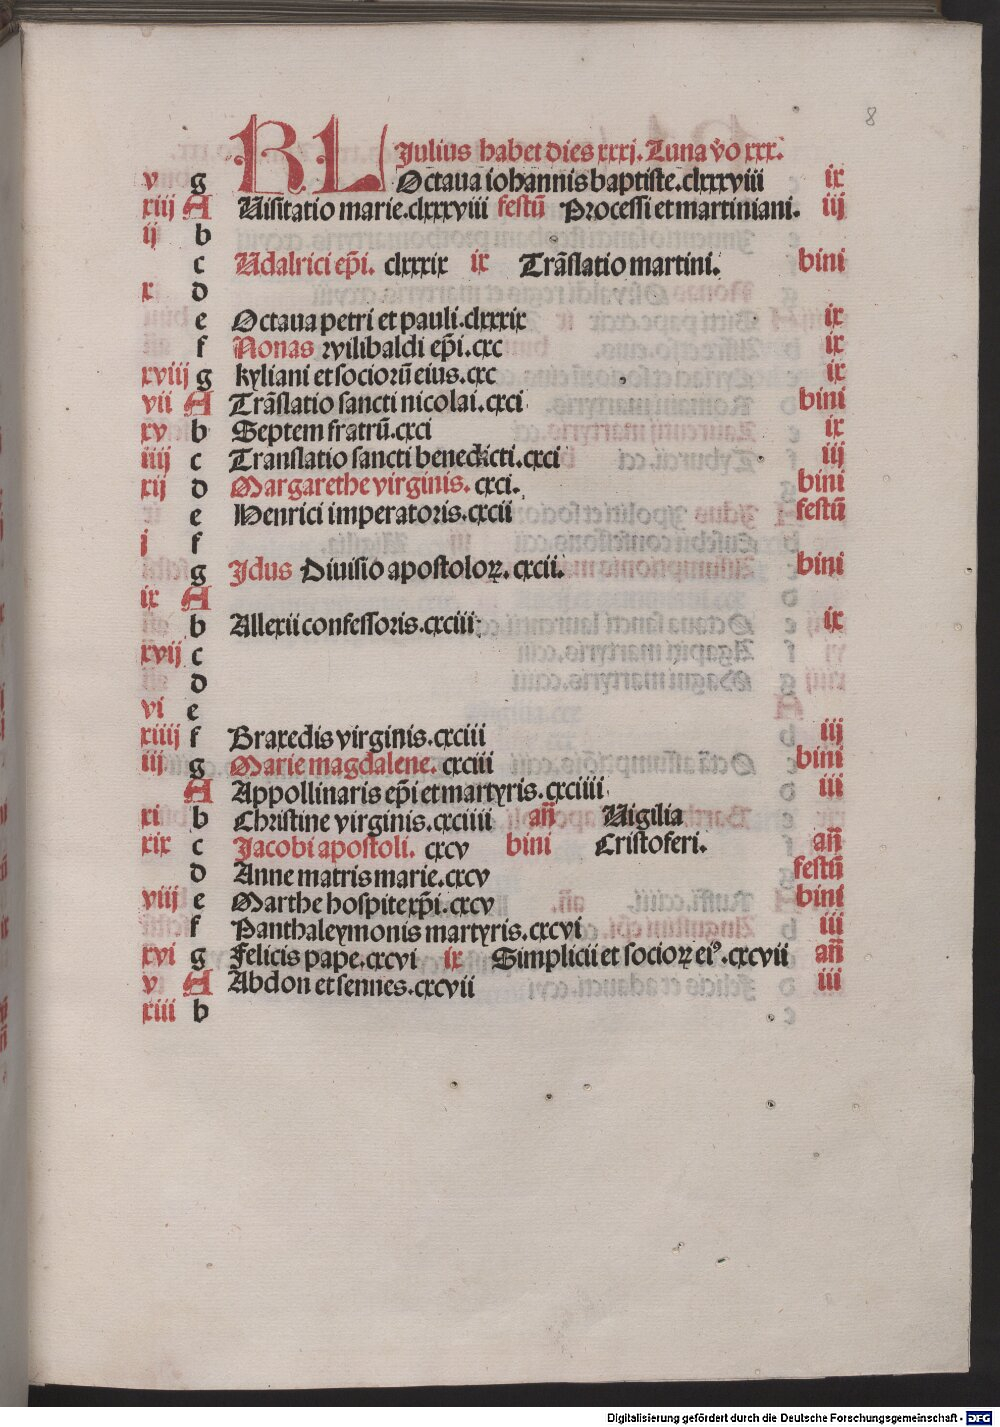 8
KL Julius habet dies xxxj. Luna v̊o xxx.
v g Octaua iohannis baptiste.clxxxviii ix
xiij A Uisitatio marie.clxxxviii festū Processi et martiniani. iij
ij b
c Udalrici ep̄i. clxxxix ix Trāslatio martini. bini
x d
e Octaua petri et pauli.clxxxix ix
f Nonas wilibaldi ep̄i.cxc ix
xviij g kyliani et sociorū eius.cxc ix
vii A Trāslatio sancti nicolai.cxci bini
xv b Septem fratrū.cxci ix
iiij c Translatio sancti benedicti.cxci iij
xij d Margarethe virginis. cxci. bini
e Henrici imperatoris.cxcii festū
j f
g Jdus Diuisio apostoloꝝ. cxcii. bini
ix A
b Allexii confessoris.cxciii ix
xvij c
d
vi e
xiiij f Braxedis virginis.cxciii iij
iij g Marie magdalene. cxciii bini
A Appollinaris ep̄i et martyris.cxciiii iii
xi b Christine virginis.cxciiii an̄ Uigilia
xix c Jacobi apostoli. cxcv bini Cristoferi. an̄
d Anne matris marie.cxcv festū
viij e Marthe hospite xp̄i.cxcv bini
f Panthaleymonis martyris.cxcvi iii
xvi g Felicis pape.cxcvi ix Simplicii et socioꝝ ei⁹.cxcvii an̄
v A Abdon et sennes.cxcvii iii
xiii b
Digitalisierung gefördert durch die Deutsche Forschungsgemeinschaft - DFG